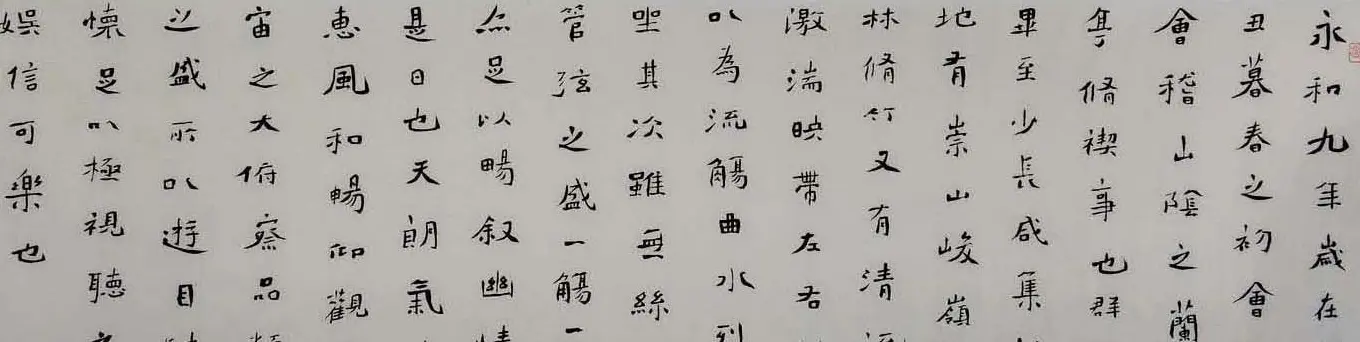 永和九年歲在
丑暮春之初會
會稽山陰之蘭
亭脩禊事也群
畢至少長咸集
地有崇山峻嶺
林脩竹又有清流
激湍映帶左右
以為流觴曲水列
坐其次雖無絲
管弦之盛一觴一
亦足以暢叙幽情
是日也天朗氣
惠風和暢仰觀
宙之大俯察品類
之盛所以遊目
懷足以極視聽之
娛信可樂也